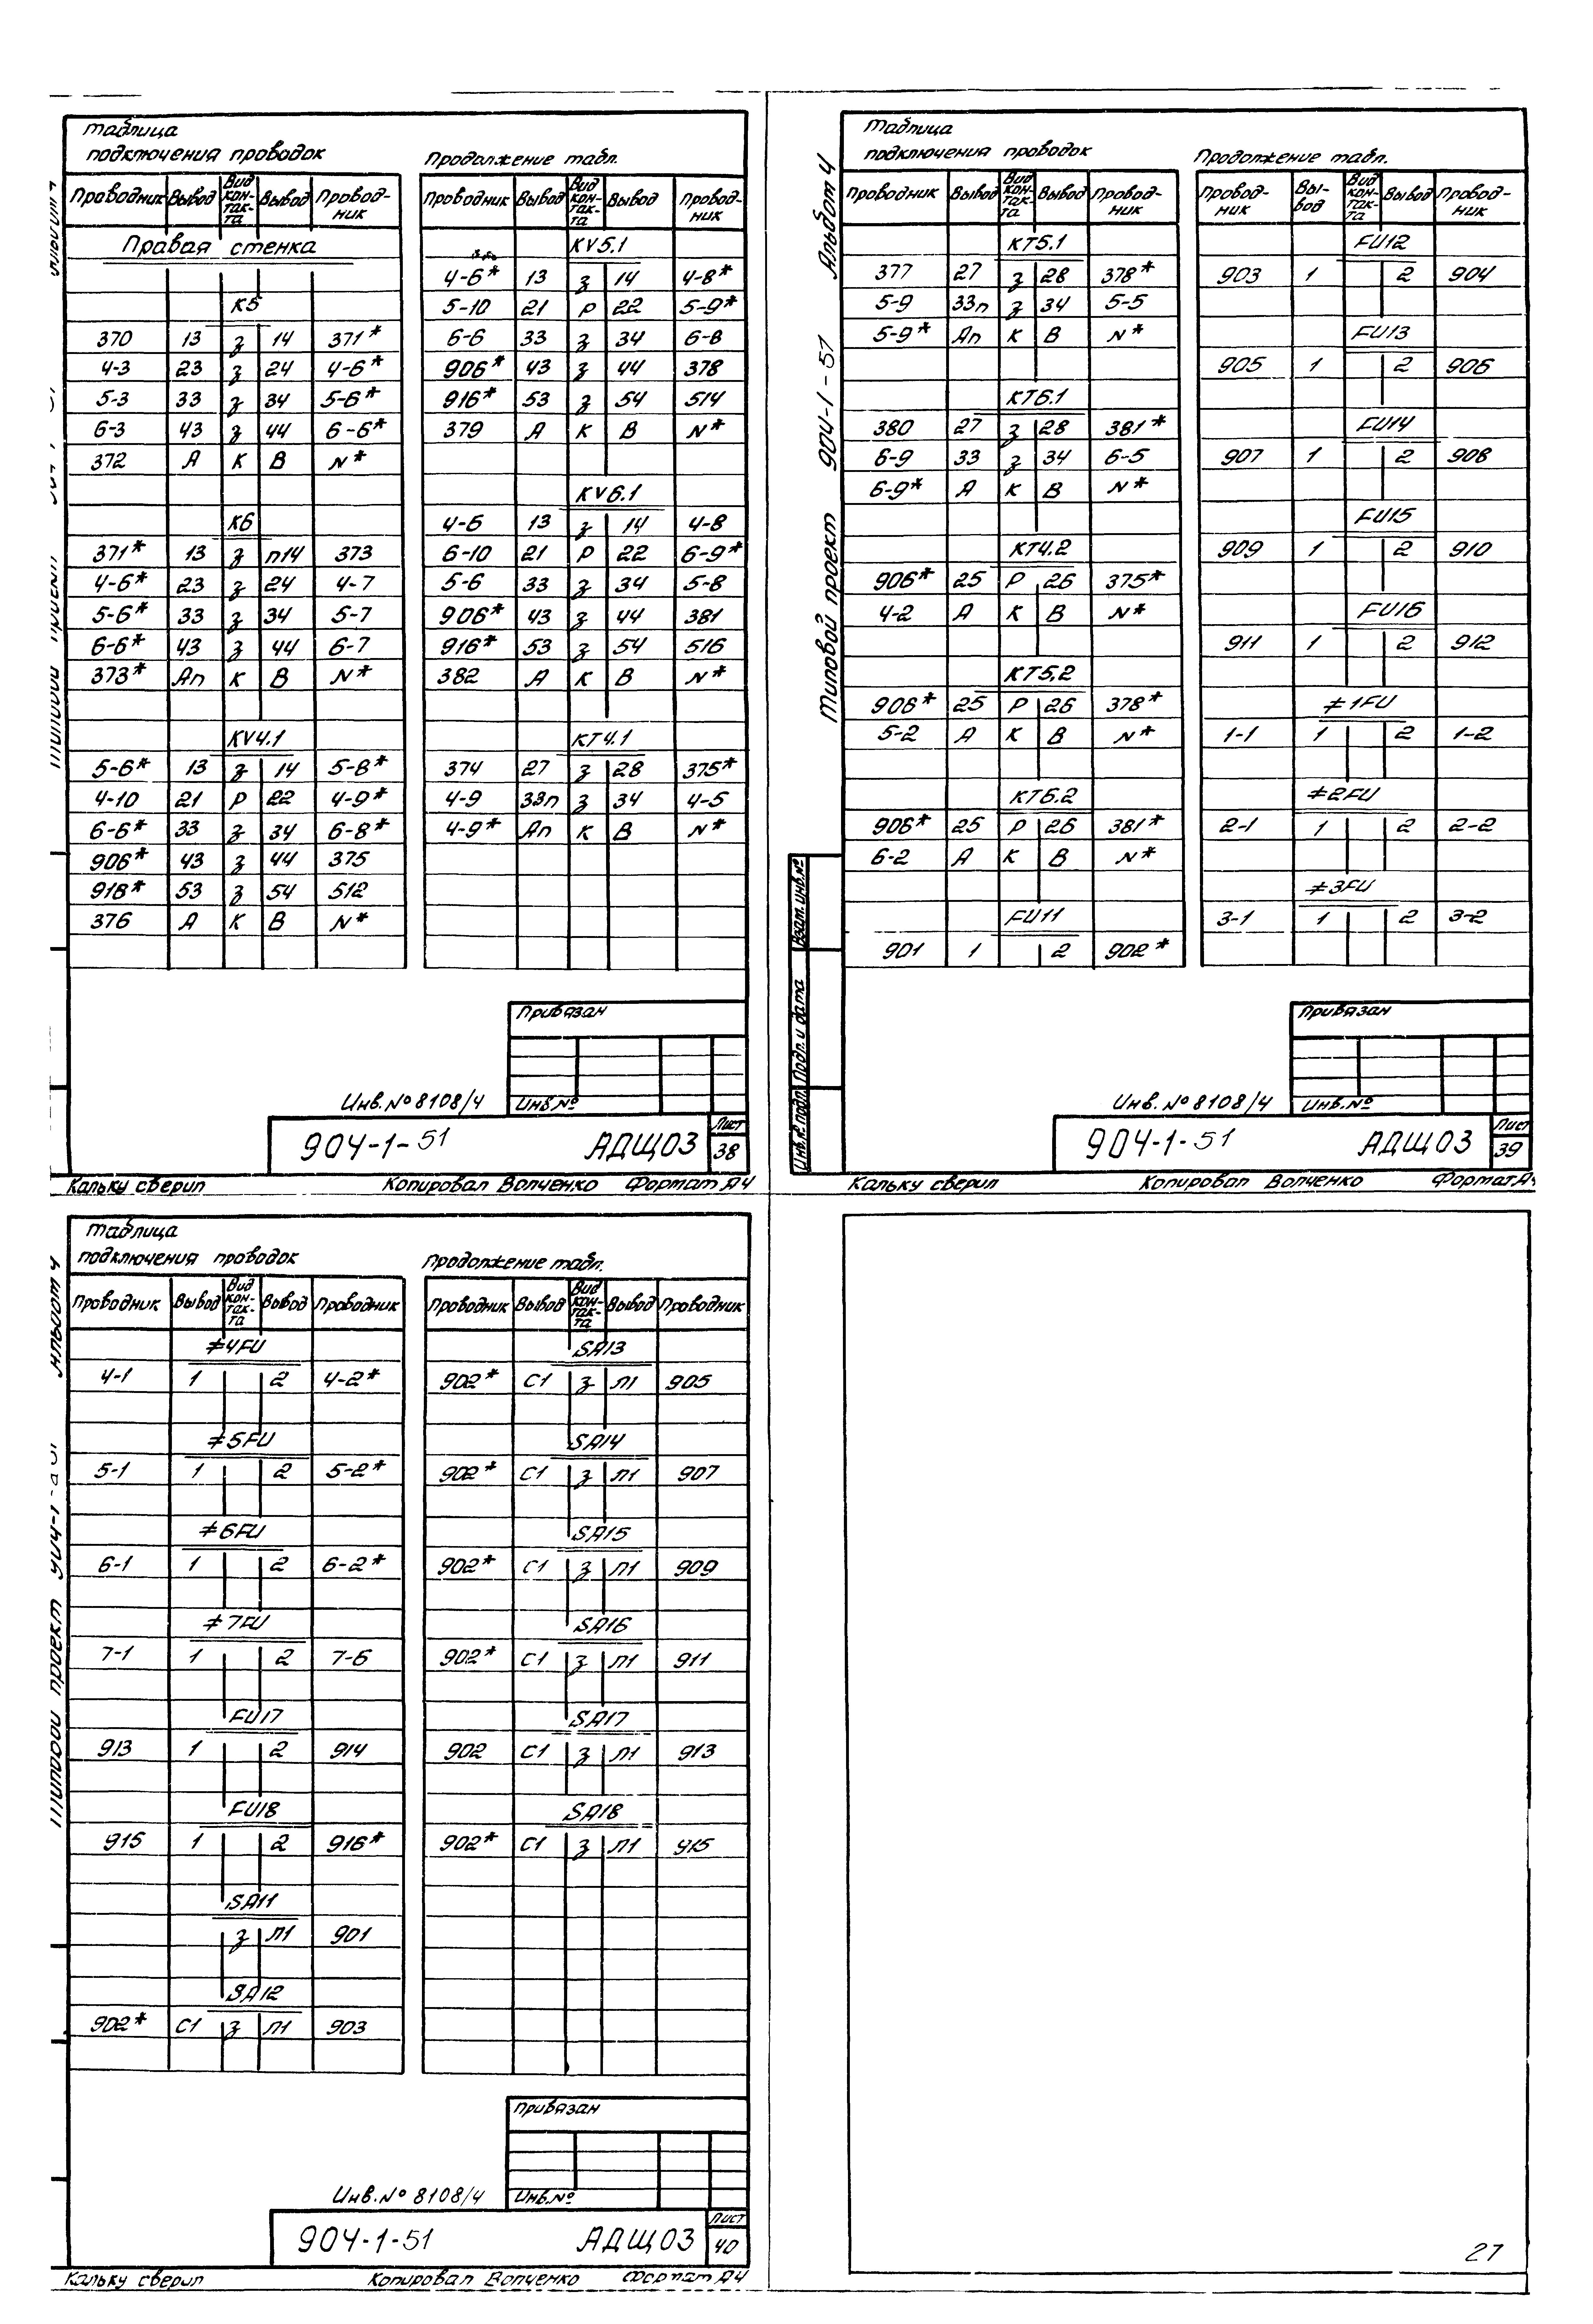 Таблица
подключения проводок
Проводник Вывод Вид кон-так-та Вывод Провод-ник
Правая стенка
К5
370 13 з 14 371*
4-3 23 з 24 4-6*
5-3 33 з 34 5-6*
6-3 43 з 44 6-6*
372 А К В N*
К6
371* 13 з п14 373
4-6* 23 з 24 4-7
5-6* 33 з 34 5-7
6-6* 43 з 44 6-7
373* Ап К В N*
KV4.1
5-6* 13 з 14 5-8*
4-10 21 Р 22 4-9*
6-6* 33 з 34 6-8*
906* 43 з 44 375
918* 53 з 54 512
376 А К В N*
Продолжение табл.
Проводник Вывод Вид кон-так-та Вывод Провод-ник
KV5.1
4-6* 13 з 14 4-8*
5-10 21 Р 22 5-9*
6-6 33 з 34 6-8
906* 43 з 44 378
916* 53 з 54 514
379 А К В N*
KV6.1
4-6 13 з 14 4-8
6-10 21 Р 22 6-9*
5-6 33 з 34 5-8
906* 43 з 44 381
916* 53 з 54 516
382 А К В N*
КТ4.1
374 27 з 28 375*
4-9 33п з 34 4-5
4-9* Ап К В N*
Привязан
Инв.№
Инв.№ 8108/4
904-1-51 АДЩ03
Лист
38
Кальку сверил Копировал Волченко Формат А4
Альбом 4
Типовой проект 904-1-51
Взам. инв.№
Подп. и дата
Инв.№ подл.
Таблица
подключения проводок
Проводник Вывод Вид кон-так-та Вывод Провод-ник
КТ5.1
377 27 з 28 378*
5-9 33п з 34 5-5
5-9* Ап К В N*
КТ6.1
380 27 з 28 381*
6-9 33 з 34 6-5
6-9* А К В N*
КТ4.2
906* 25 Р 26 375*
4-2 А К В N*
КТ5.2
906* 25 Р 26 378*
5-2 А К В N*
КТ6.2
906* 25 Р 26 381*
6-2 А К В N*
FU11
901 1 2 902*
Продолжение табл.
Провод-ник Вы-вод Вид кон-так-та Вывод Провод-ник
FU12
903 1 2 904
FU13
905 1 2 906
FU14
907 1 2 908
FU15
909 1 2 910
FU16
911 1 2 912
≠1FU
1-1 1 2 1-2
≠2FU
2-1 1 2 2-2
≠3FU
3-1 1 2 3-2
Привязан
Инв.№
Инв.№ 8108/4
904-1-51 АДЩ03
Лист
39
Кальку сверил Копировал Волченко Формат А4
Альбом 4
Типовой проект 904-1-51
Таблица
подключения проводок
Проводник Вывод Вид кон-так-та Вывод Проводник
≠4FU
4-1 1 2 4-2*
≠5FU
5-1 1 2 5-2*
≠6FU
6-1 1 2 6-2*
≠7FU
7-1 1 2 7-6
FU17
913 1 2 914
FU18
915 1 2 916*
SA11
з Л1 901
SA12
902* С1 з Л1 903
Продолжение табл.
Проводник Вывод Вид кон-так-та Вывод Проводник
SA13
902* С1 з Л1 905
SA14
902* С1 з Л1 907
SA15
902* С1 з Л1 909
SA16
902* С1 з Л1 911
SA17
902 С1 з Л1 913
SA18
902* С1 з Л1 915
Привязан
Инв.№
Инв.№ 8108/4
904-1-51 АДЩ03
Лист
40
Кальку сверил Копировал Волченко Формат А4
27